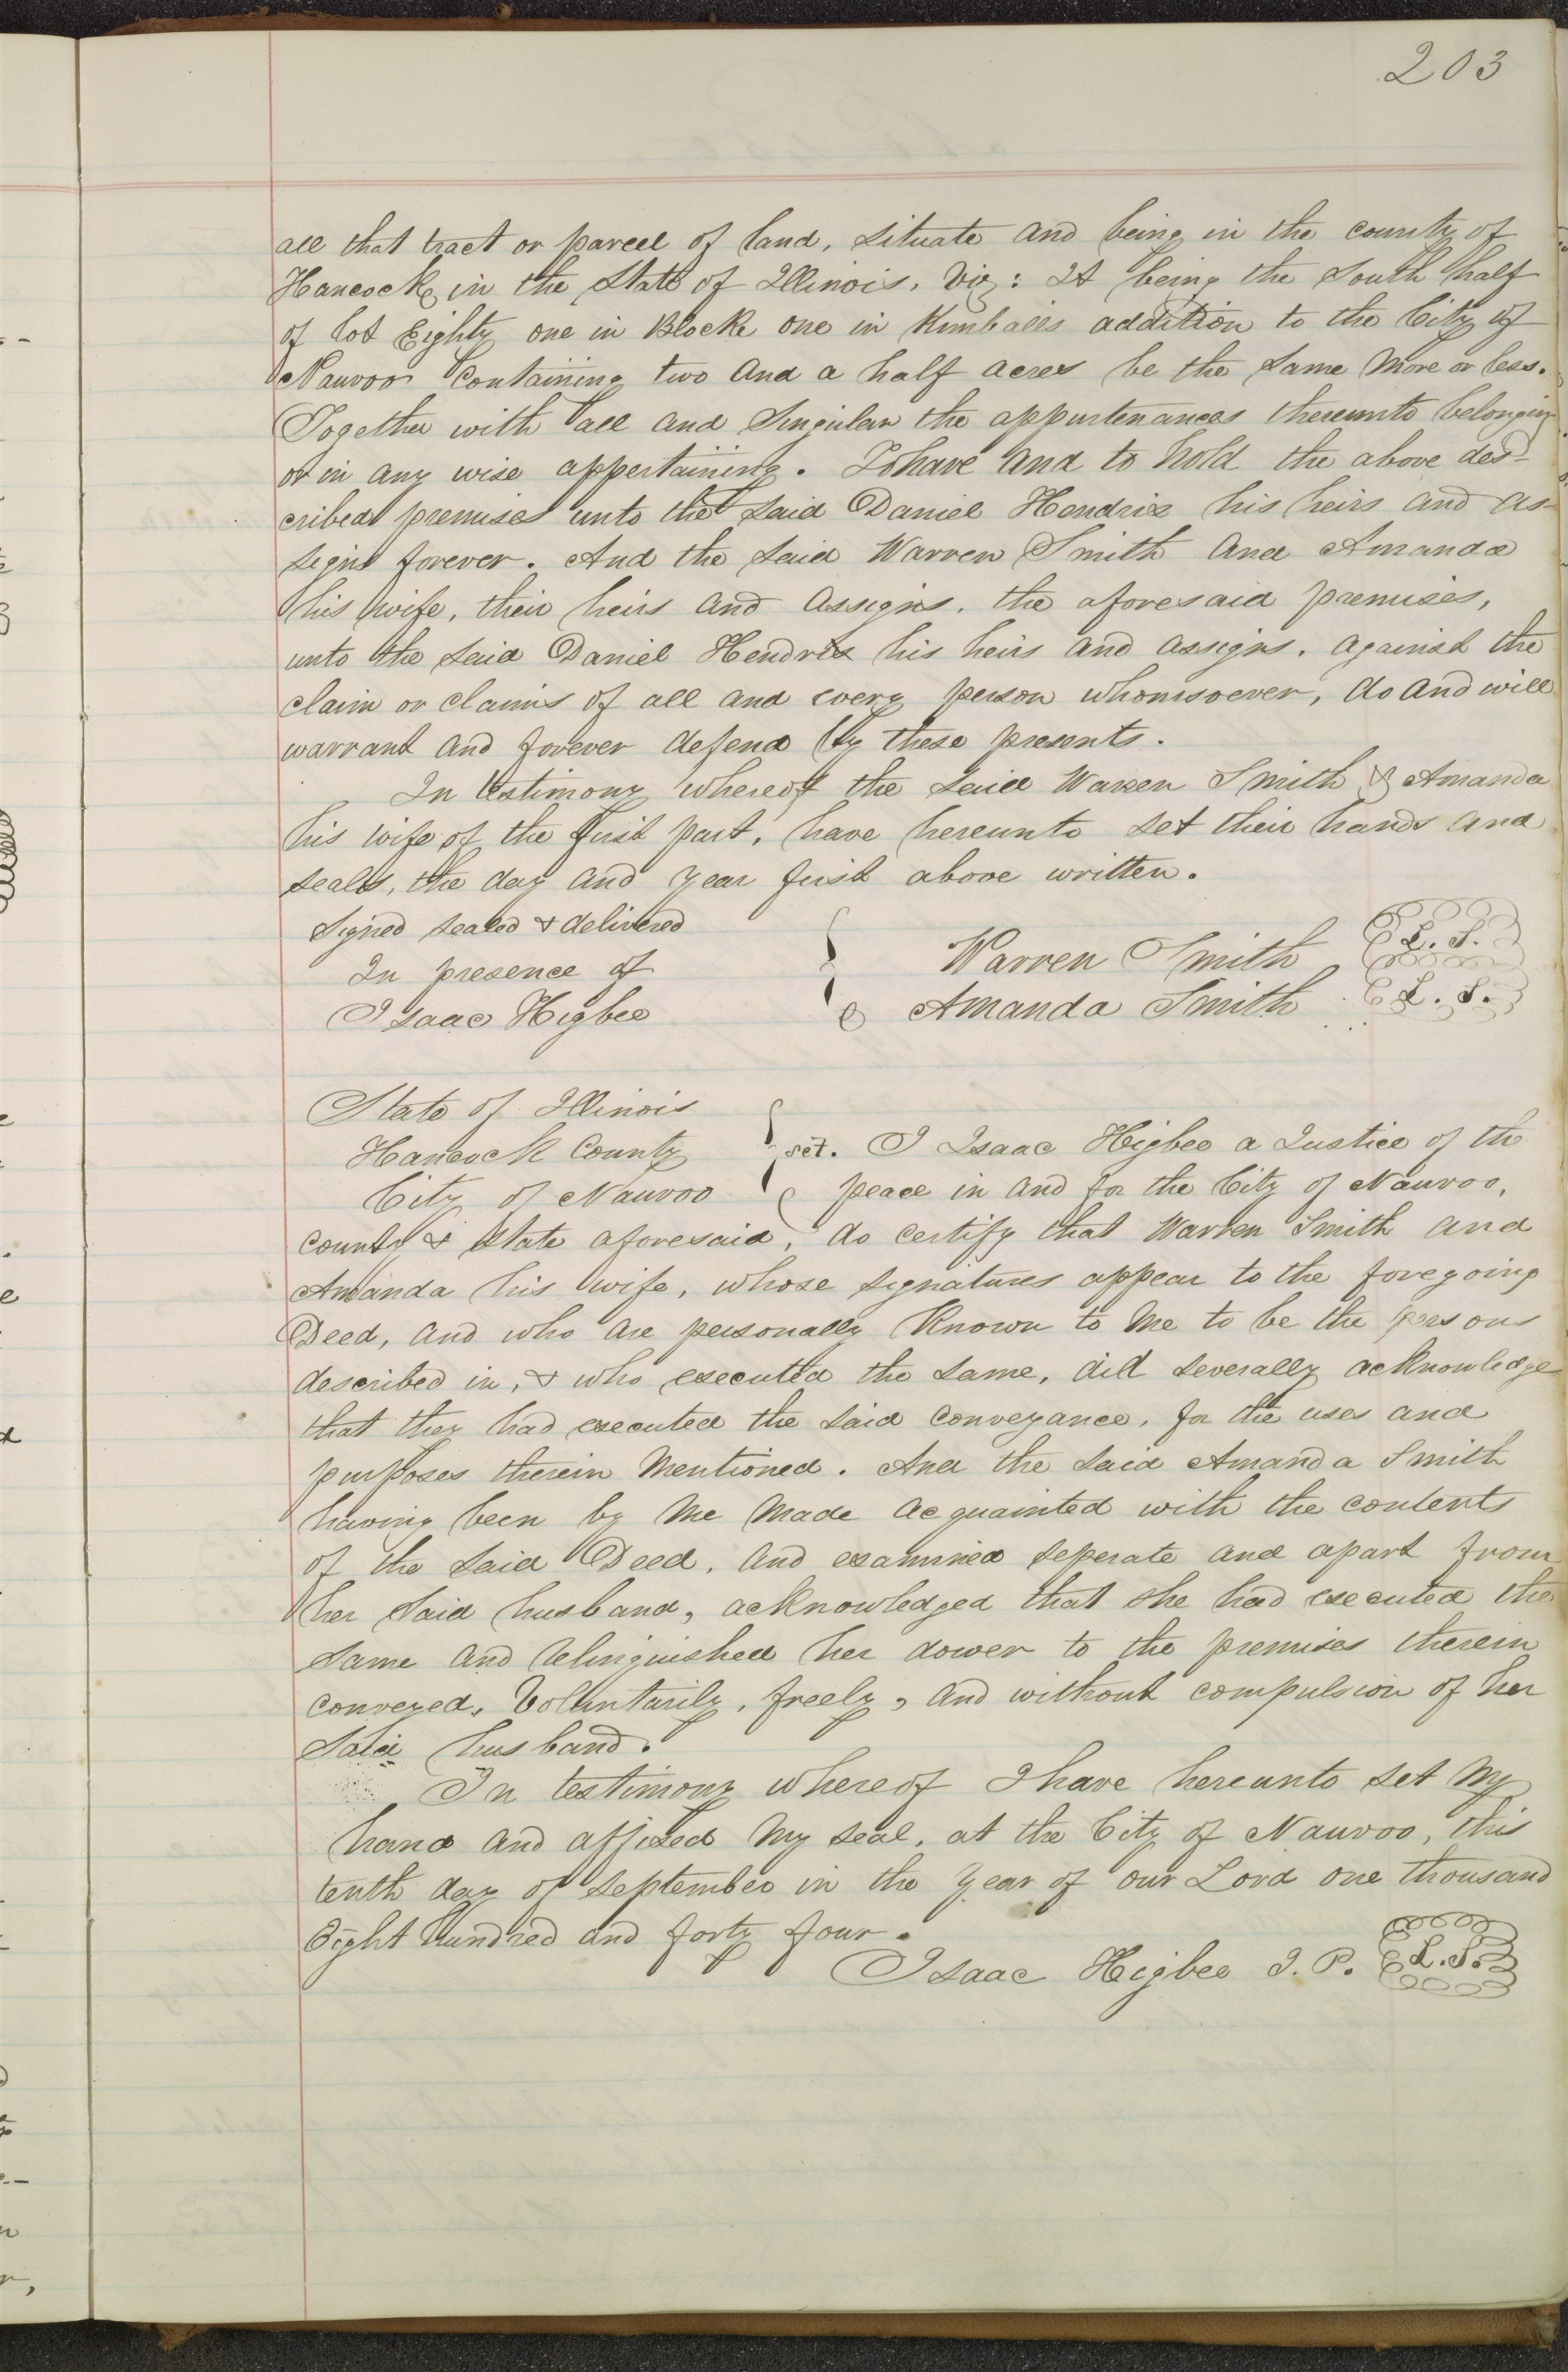 203
all that tract or parcel of land, situate and being in the county of
Hancock, in the State of Illinois, Viz: It being the South half
of lot Eighty one in Block one in Kimballs addition to the City of
Nauvoo Containing two and a half acres be the same more or less.
Together with all and Singular the appurtenances thereunto belonging
or in any wise appertaining. To have and to hold the above des-
cribed premises unto the said Daniel Hendrix his heirs and as-
signs forever. And the said Warren Smith and Amanda
his wife, their heirs and assigns, the aforesaid premises,
unto the said Daniel Hendrix his heirs and assigns, against the
claim or claims of all and every person whomsoever, do and will
warrant and forever defend by these presents.
In testimony whereof the said Warren Smith & Amanda
his wife of the first part, have hereunto set their hands and
seals, the day and year first above written.
Signed sealed & delivered
In presence of Warren Smith L. S.
Isaac Higbee Amanda Smith L. S.
State of Illinois
Hancock County sct. I Isaac Higbee a Justice of the
City of Nauvoo peace in and for the City of Nauvoo,
county & State aforesaid, do certify that Warren Smith and
Amanda his wife, whose signatures appear to the foregoing
Deed, and who are personally known to me to be the persons
described in, & who executed the same, did severally acknowledge
that they had executed the said conveyance, for the uses and
purposes therein mentioned. And the said Amanda Smith
having been by me made acquainted with the contents
of the said Deed, and examined seperate and apart from
her said husband, acknowledged that she had executed the
same and relinquished her dower to the premises therein
conveyed, Voluntarily, freely, and without compulsion of her
said husband.
In testimony whereof I have hereunto set my
hand and affixed my seal, at the City of Nauvoo, this
tenth day of September in the year of our Lord one thousand
Eight hundred and forty four.
Isaac Higbee J. P. L. S.